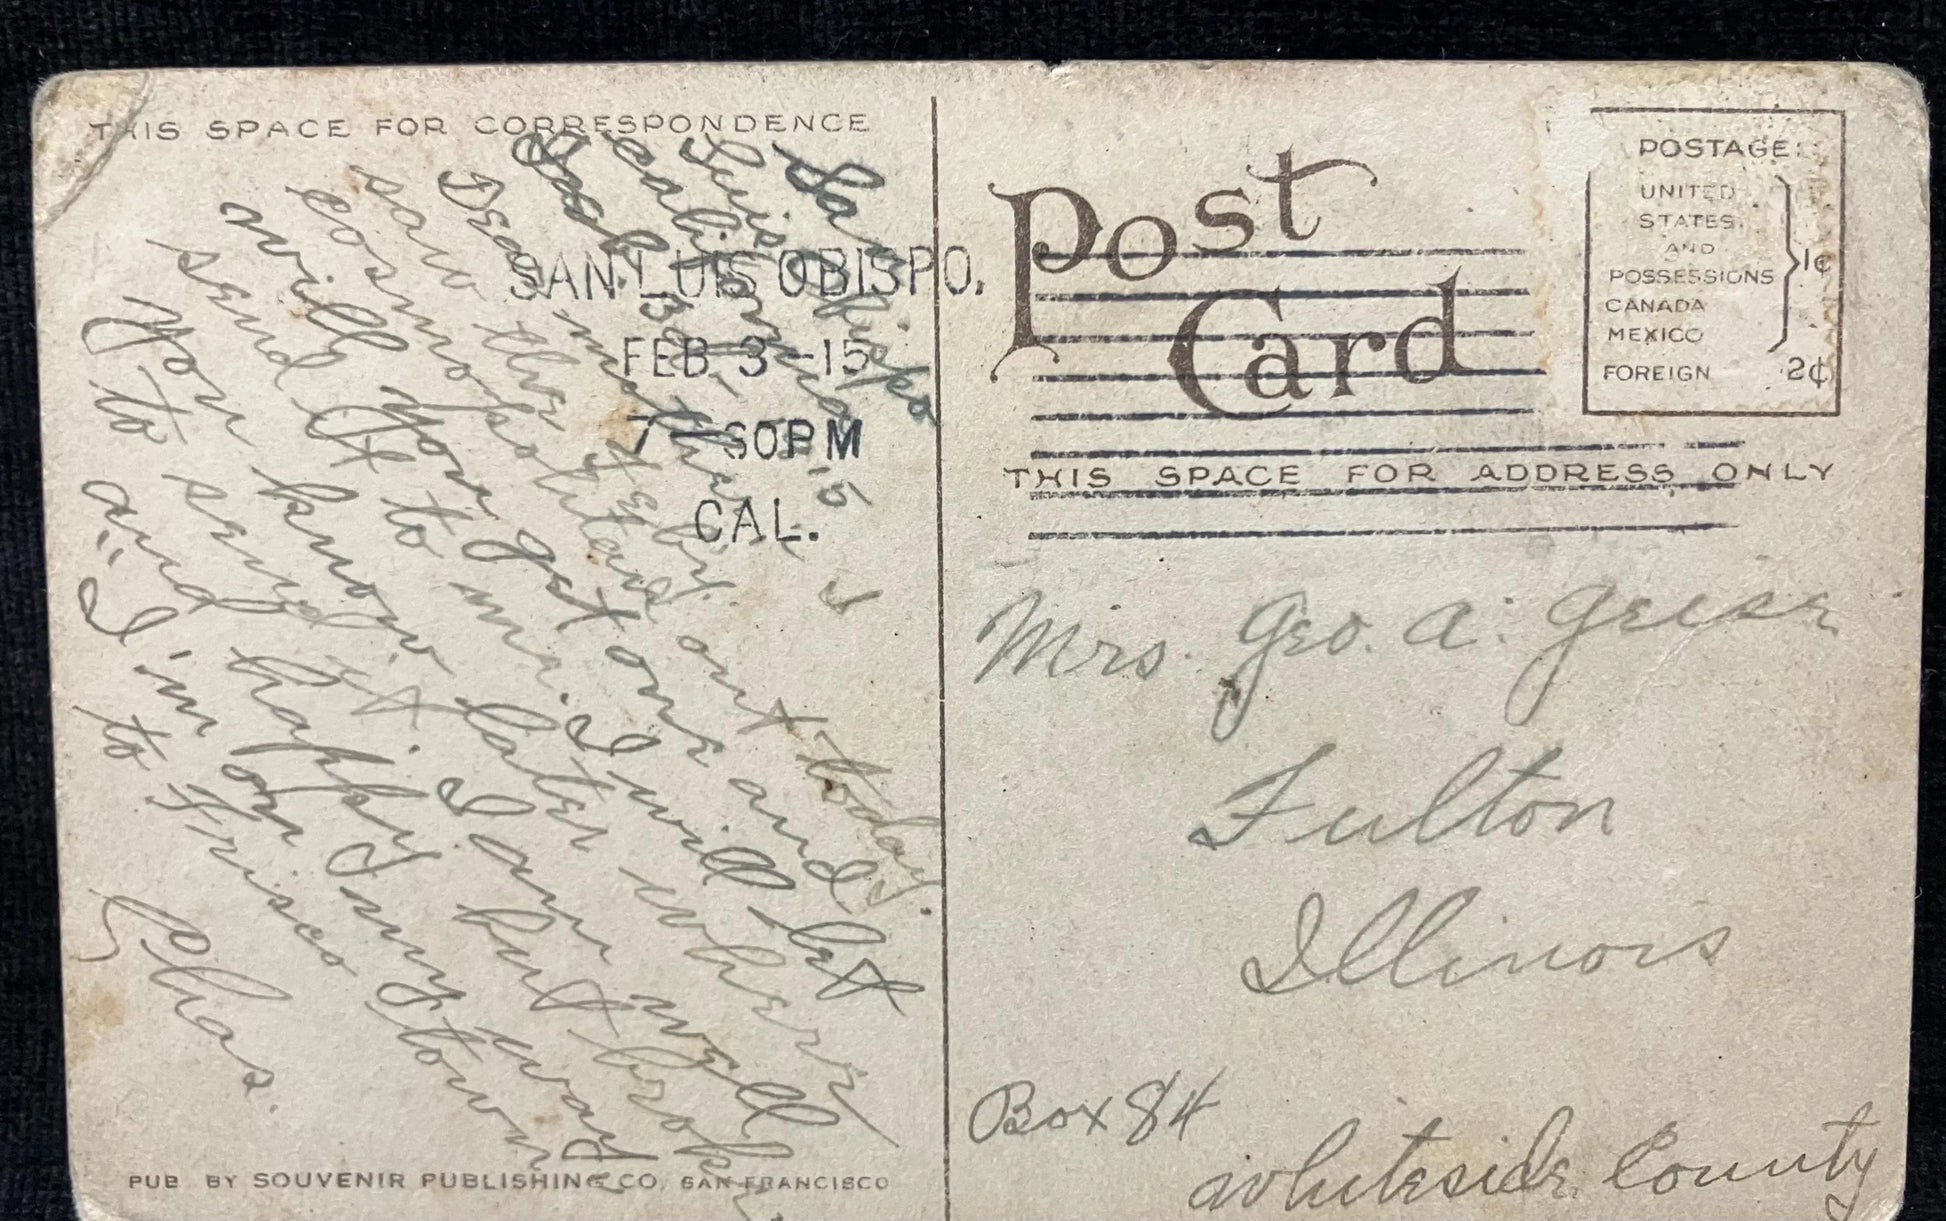 THIS SPACE FOR CORRESPONDENCE
San
Luis Obispo
California
Feb. 3rd '15
Dear mother: I
saw the Feby.
cosmopolitans out today.
will you get one and
send it to me. I will let
you know later where
to send it. I am well
and happy but broke
"I'm on my way
to Frisco town
Chas.
SAN LUIS OBISPO.
FEB 3 -15
7 30PM
CAL.
PUB BY SOUVENIR PUBLISHING CO. SAN FRANCISCO
Post
Card
POSTAGE:
UNITED
STATES
AND
POSSESSIONS
CANADA
MEXICO
1¢
FOREIGN 2¢
THIS SPACE FOR ADDRESS ONLY
Mrs. Geo. A.
Fulton
Illinois
Box 84
Whiteside County